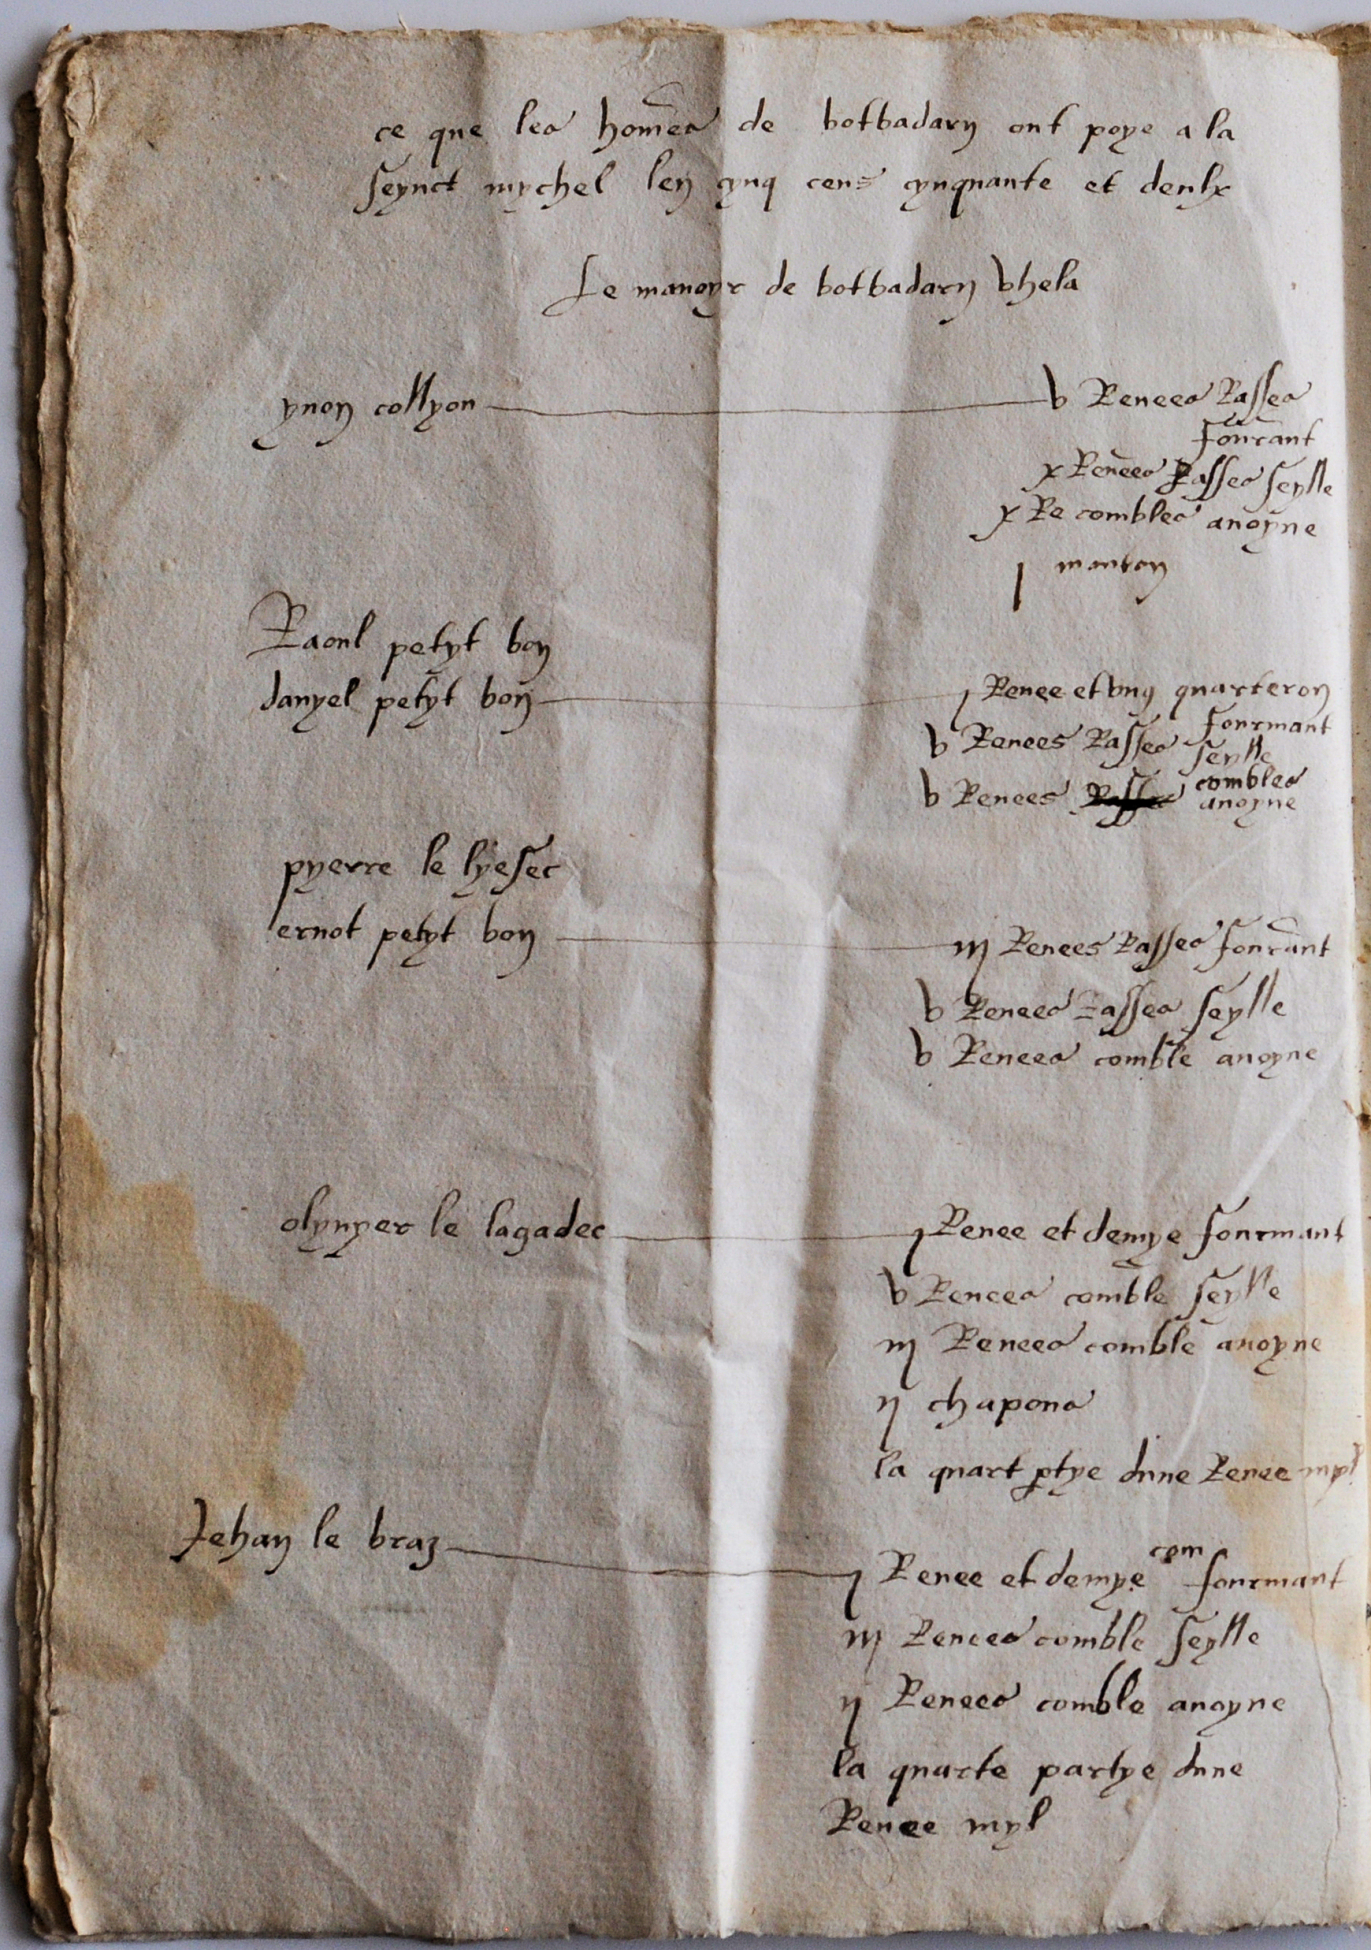 ce que les homes de botbadarn ont poye a la
seynct mychel len cynq cens cynquante et deulx
Le manoyr de botbadarn vhela
yvon collyon v Renees Rasses
fourant
x Renees Rasses seylle
x Re combles avoyne
j mouton
Raoul petyt bon
danyel petyt bon j Renee et ung quarteron
fourmant
v Renees Rasses seylle
v Renees Rasses combles
avoyne
pyerre le lyesec
ernot petyt bon iij Renees Rasses fourant
v Renees Rasses seylle
v Renees comble avoyne
olyvyer le lagadec j Renee et demye fourmant
v Renees comble seylle
iij Renees comble avoyne
ij chapons
la quart ptye dune Renee myl
Jehan le braz j Renee et demye com fourmant
iij Renees comble seylle
ij Renees comble avoyne
la quarte partye dune
Renee myl